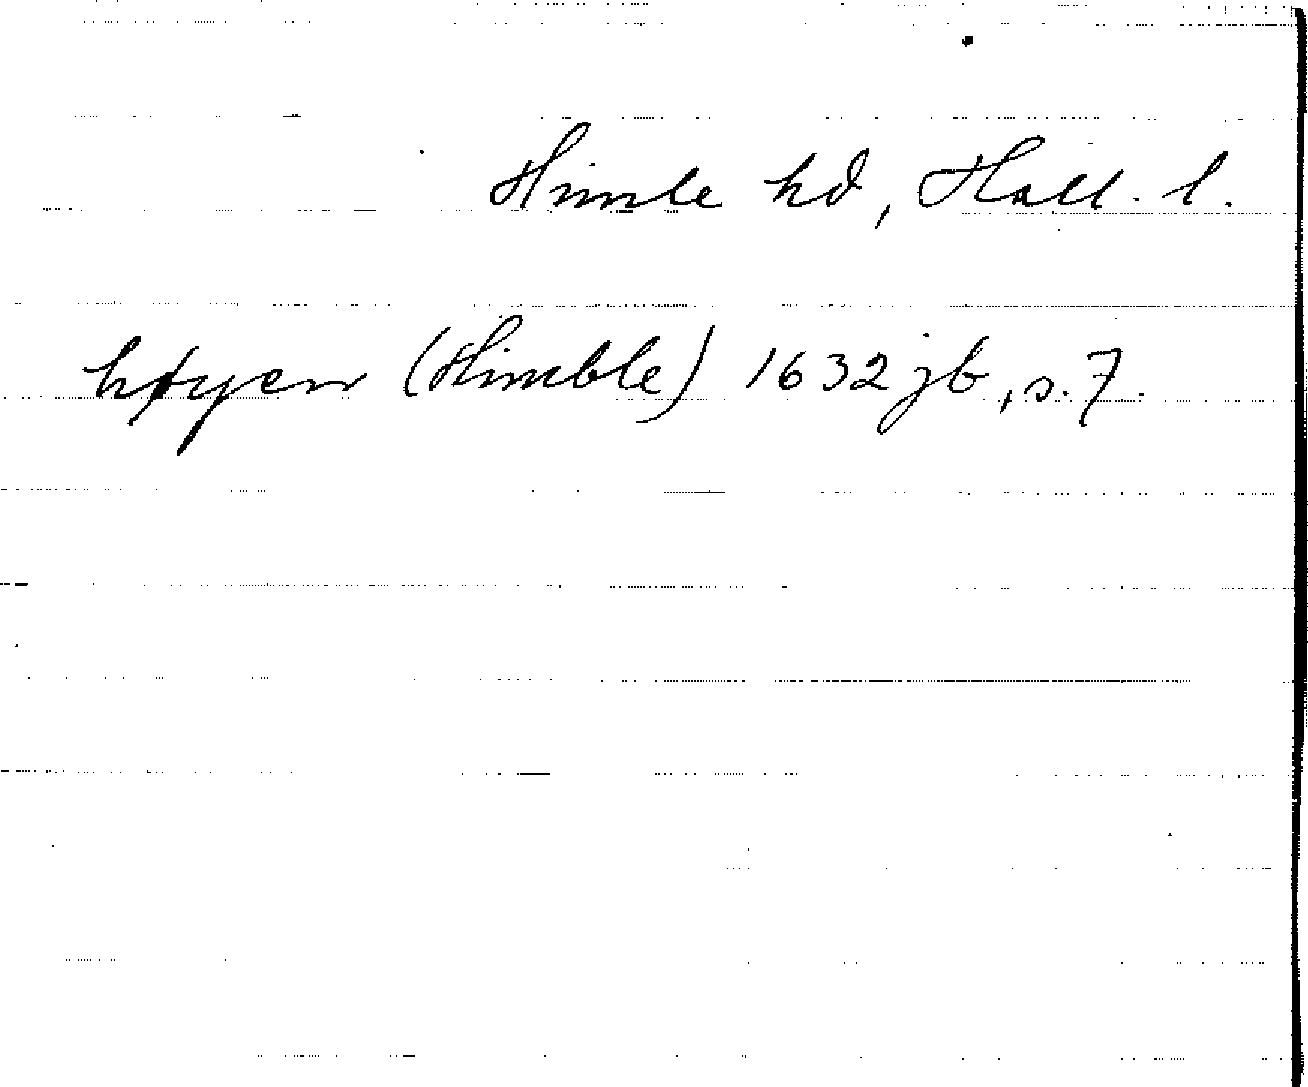 Himle hd, Hall. l.
høyen (Himble) 1632 jb, s. 7.